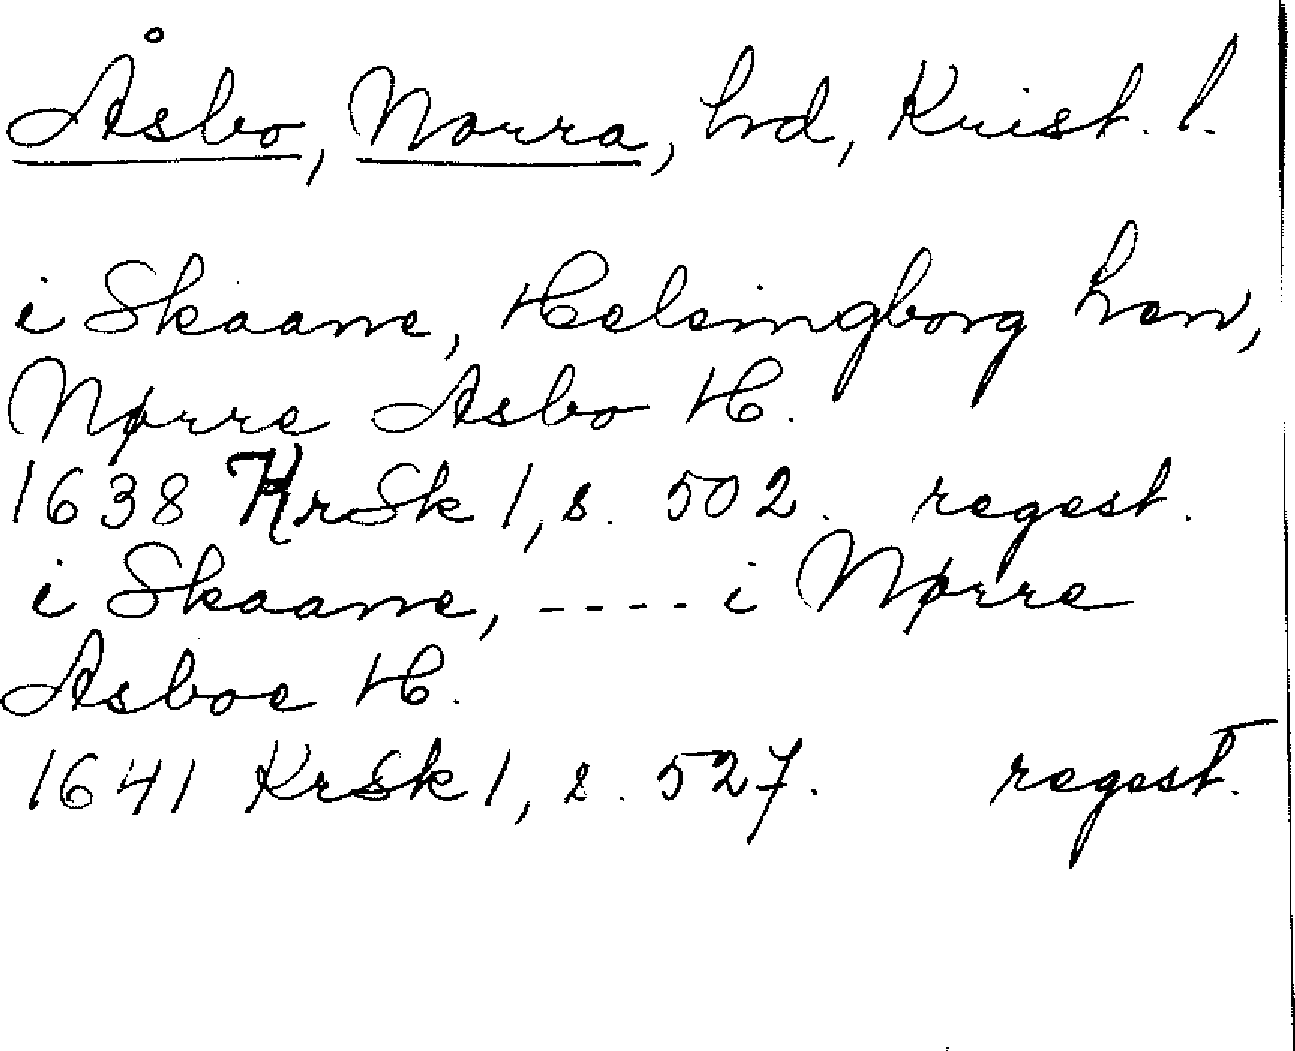 Åsbo, Norra, hd, Krist. l.
i Skaane, Helsingborg Len,
Nørre Asbo H.
1638 KrSk 1, s. 502. regest.
i Skaane, ---- i Nørre
Asboe H.
1641 KrSk 1, s. 527. regest.